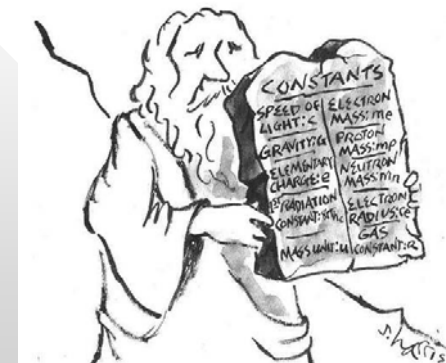 CONSTANTS
SPEED OF
LIGHT: c
GRAVITY: G
ELEMENTARY
CHARGE: e
1ST RADIATION
CONSTANT:
MASS UNIT: u
ELECTRON
MASS: me
PROTON
MASS: mp
NEUTRON
MASS: mn
ELECTRON
RADIUS: re
GAS
CONSTANT: R
S. Harris